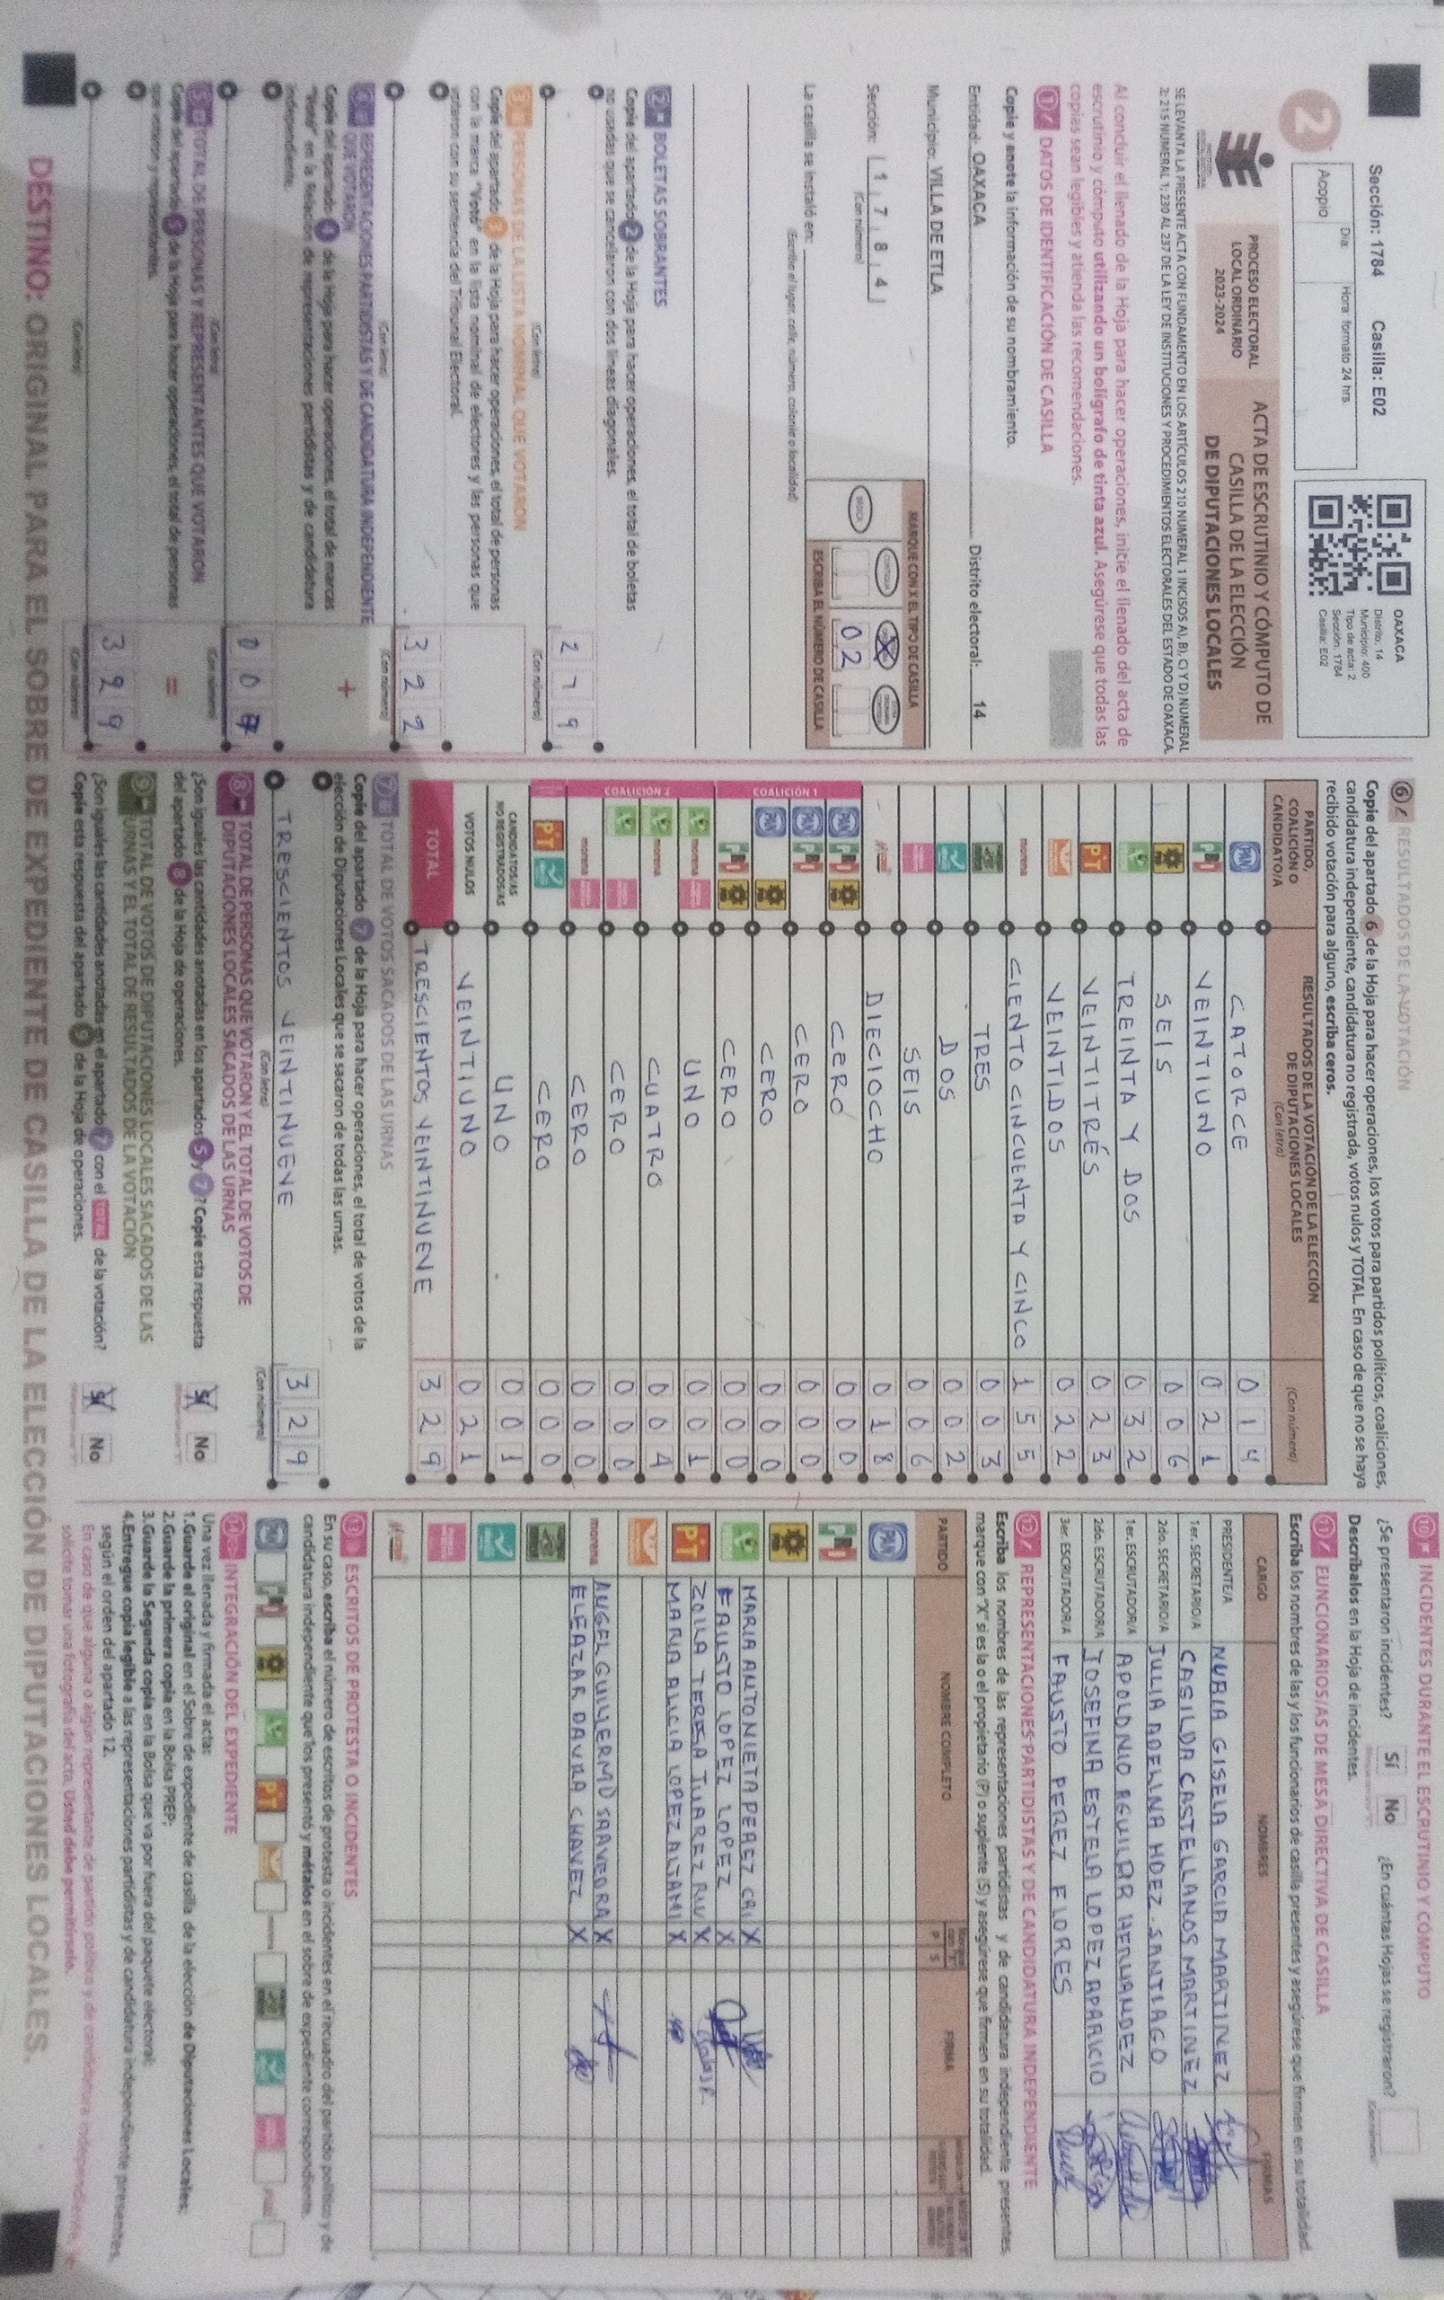 Sección: 1784 Casilla: E02
2
Día: Hora: formato 24 hrs.
Acopio
OAXACA
Distrito: 14
Municipio: 400
Tipo de acta: 2
Sección: 1784
Casilla: E02
PROCESO ELECTORAL
LOCAL ORDINARIO
2023-2024
ACTA DE ESCRUTINIO Y CÓMPUTO DE
CASILLA DE LA ELECCIÓN
DE DIPUTACIONES LOCALES
SE LEVANTA LA PRESENTE ACTA CON FUNDAMENTO EN LOS ARTÍCULOS 210 NUMERAL 1 INCISOS A), B), C) Y D) NUMERAL
2; 215 NUMERAL 1; 230 AL 237 DE LA LEY DE INSTITUCIONES Y PROCEDIMIENTOS ELECTORALES DEL ESTADO DE OAXACA.
Al concluir el llenado de la Hoja para hacer operaciones, inicie el llenado del acta de
escrutinio y cómputo utilizando un bolígrafo de tinta azul. Asegúrese que todas las
copias sean legibles y atienda las recomendaciones.
1 DATOS DE IDENTIFICACIÓN DE CASILLA
Copie y anote la información de su nombramiento.
Entidad: OAXACA Distrito electoral: 14
Municipio: VILLA DE ETLA
Sección: 1 7 8 4
(Con número)
MARQUE CON X EL TIPO DE CASILLA
BÁSICA
ESCRIBA EL NÚMERO DE CASILLA
02
La casilla se instaló en:
(Escriba el lugar, calle, número, colonia o localidad)
2 BOLETAS SOBRANTES
Copie del apartado 2 de la Hoja para hacer operaciones, el total de boletas
no usadas que se cancelaron con dos líneas diagonales.
(Con letra) (Con número)
3 PERSONAS DE LA LISTA NOMINAL QUE VOTARON
Copie del apartado 3 de la Hoja para hacer operaciones, el total de personas
con la marca "Votó" en la lista nominal de electores y las personas que
votaron con su sentencia del Tribunal Electoral.
3 2 2
(Con letra) (Con número)
4 REPRESENTACIONES PARTIDISTAS Y DE CANDIDATURA INDEPENDIENTE
QUE VOTARON
Copie del apartado 4 de la Hoja para hacer operaciones, el total de marcas
"Votó" en la Relación de representaciones partidistas y de candidatura
independiente.
+
0 0 7
(Con letra) (Con número)
5 TOTAL DE PERSONAS Y REPRESENTANTES QUE VOTARON
Copie del apartado 5 de la Hoja para hacer operaciones, el total de personas
que votaron y representantes.
=
3 2 9
(Con letra) (Con número)
6 RESULTADOS DE LA VOTACIÓN
Copie del apartado 6 de la Hoja para hacer operaciones, los votos para partidos políticos, coaliciones,
candidatura independiente, candidatura no registrada, votos nulos y TOTAL. En caso de que no se haya
recibido votación para alguno, escriba ceros.
PARTIDO,
COALICIÓN O
CANDIDATO/A
RESULTADOS DE LA VOTACIÓN DE LA ELECCIÓN
DE DIPUTACIONES LOCALES
(Con letra) (Con número)
PAN CATORCE 014
PRI VEINTIUNO 021
SEIS 006
TREINTA Y DOS 032
PT VEINTITRÉS 023
VEINTIDOS 022
morena CIENTO CINCUENTA Y CINCO 155
TRES 003
DOS 002
SEIS 006
DIECIOCHO 018
COALICIÓN 1
PAN PRI CERO 000
PAN PRI CERO 000
PAN CERO 000
PRI CERO 000
COALICIÓN 2
morena UNO 001
morena CUATRO 004
CERO 000
morena CERO 000
PT CERO 000
CANDIDATOS/AS
NO REGISTRADOS/AS UNO 001
VOTOS NULOS VEINTIUNO 021
TOTAL TRESCIENTOS VEINTINUEVE 329
7 TOTAL DE VOTOS SACADOS DE LAS URNAS
Copie del apartado 7 de la Hoja para hacer operaciones, el total de votos de la
elección de Diputaciones Locales que se sacaron de todas las urnas.
TRESCIENTOS VEINTINUEVE 329
(Con letra) (Con número)
8 TOTAL DE PERSONAS QUE VOTARON Y EL TOTAL DE VOTOS DE
DIPUTACIONES LOCALES SACADOS DE LAS URNAS
¿Son iguales las cantidades anotadas en los apartados 5 y 7? Copie esta respuesta
del apartado 8 de la Hoja de operaciones.
Sí No
9 TOTAL DE VOTOS DE DIPUTACIONES LOCALES SACADOS DE LAS
URNAS Y EL TOTAL DE RESULTADOS DE LA VOTACIÓN
¿Son iguales las cantidades anotadas en el apartado 7 con el TOTAL de la votación?
Copie esta respuesta del apartado 9 de la Hoja de operaciones.
Sí No
10 INCIDENTES DURANTE EL ESCRUTINIO Y CÓMPUTO
¿Se presentaron incidentes? Sí No ¿En cuántas Hojas se registraron?
Descríbalos en la Hoja de incidentes.
11 FUNCIONARIOS/AS DE MESA DIRECTIVA DE CASILLA
Escriba los nombres de las y los funcionarios de casilla presentes y asegúrese que firmen en su totalidad.
CARGO NOMBRES FIRMAS
PRESIDENTE/A NURIA GISELA GARCIA MARTINEZ
1er. SECRETARIO/A CASILDA CASTELLANOS MARTINEZ
2do. SECRETARIO/A JULIA ADELINA HDEZ. SANTIAGO
1er. ESCRUTADOR/A APOLONIO AGUILAR HERNANDEZ
2do. ESCRUTADOR/A JOSEFINA ESTELA LOPEZ APARICIO
3er. ESCRUTADOR/A FAUSTO PEREZ FLORES
12 REPRESENTACIONES PARTIDISTAS Y DE CANDIDATURA INDEPENDIENTE
Escriba los nombres de las representaciones partidistas y de candidatura independiente presentes,
marque con "X" si es la o el propietario (P) o suplente (S) y asegúrese que firmen en su totalidad.
PARTIDO NOMBRE COMPLETO P S FIRMA
PAN
PRI
MARIA ANTONIETA PEREZ X
FAUSTO LOPEZ LOPEZ X
PT ZOILA TERESA JUAREZ X
MARIA ALICIA LOPEZ X
morena ANGEL GUILLERMO SAAVEDRA X
ELEAZAR CHAVEZ X
13 ESCRITOS DE PROTESTA O INCIDENTES
En su caso, escriba el número de escritos de protesta o incidentes en el recuadro del partido político y de
candidatura independiente que los presentó y métalos en el sobre de expediente correspondiente.
14 INTEGRACIÓN DEL EXPEDIENTE
Una vez llenada y firmada el acta:
1.Guarde el original en el Sobre de expediente de casilla de la elección de Diputaciones Locales;
2.Guarde la primera copia en la Bolsa PREP;
3.Guarde la Segunda copia en la Bolsa que va por fuera del paquete electoral;
4.Entregue copia legible a las representaciones partidistas y de candidatura independiente presentes,
según el orden del apartado 12.
En caso de que alguna o algún representante de partido político y de candidatura independiente
solicite tomar una fotografía del acta, Usted debe permitírselo.
DESTINO: ORIGINAL PARA EL SOBRE DE EXPEDIENTE DE CASILLA DE LA ELECCIÓN DE DIPUTACIONES LOCALES.